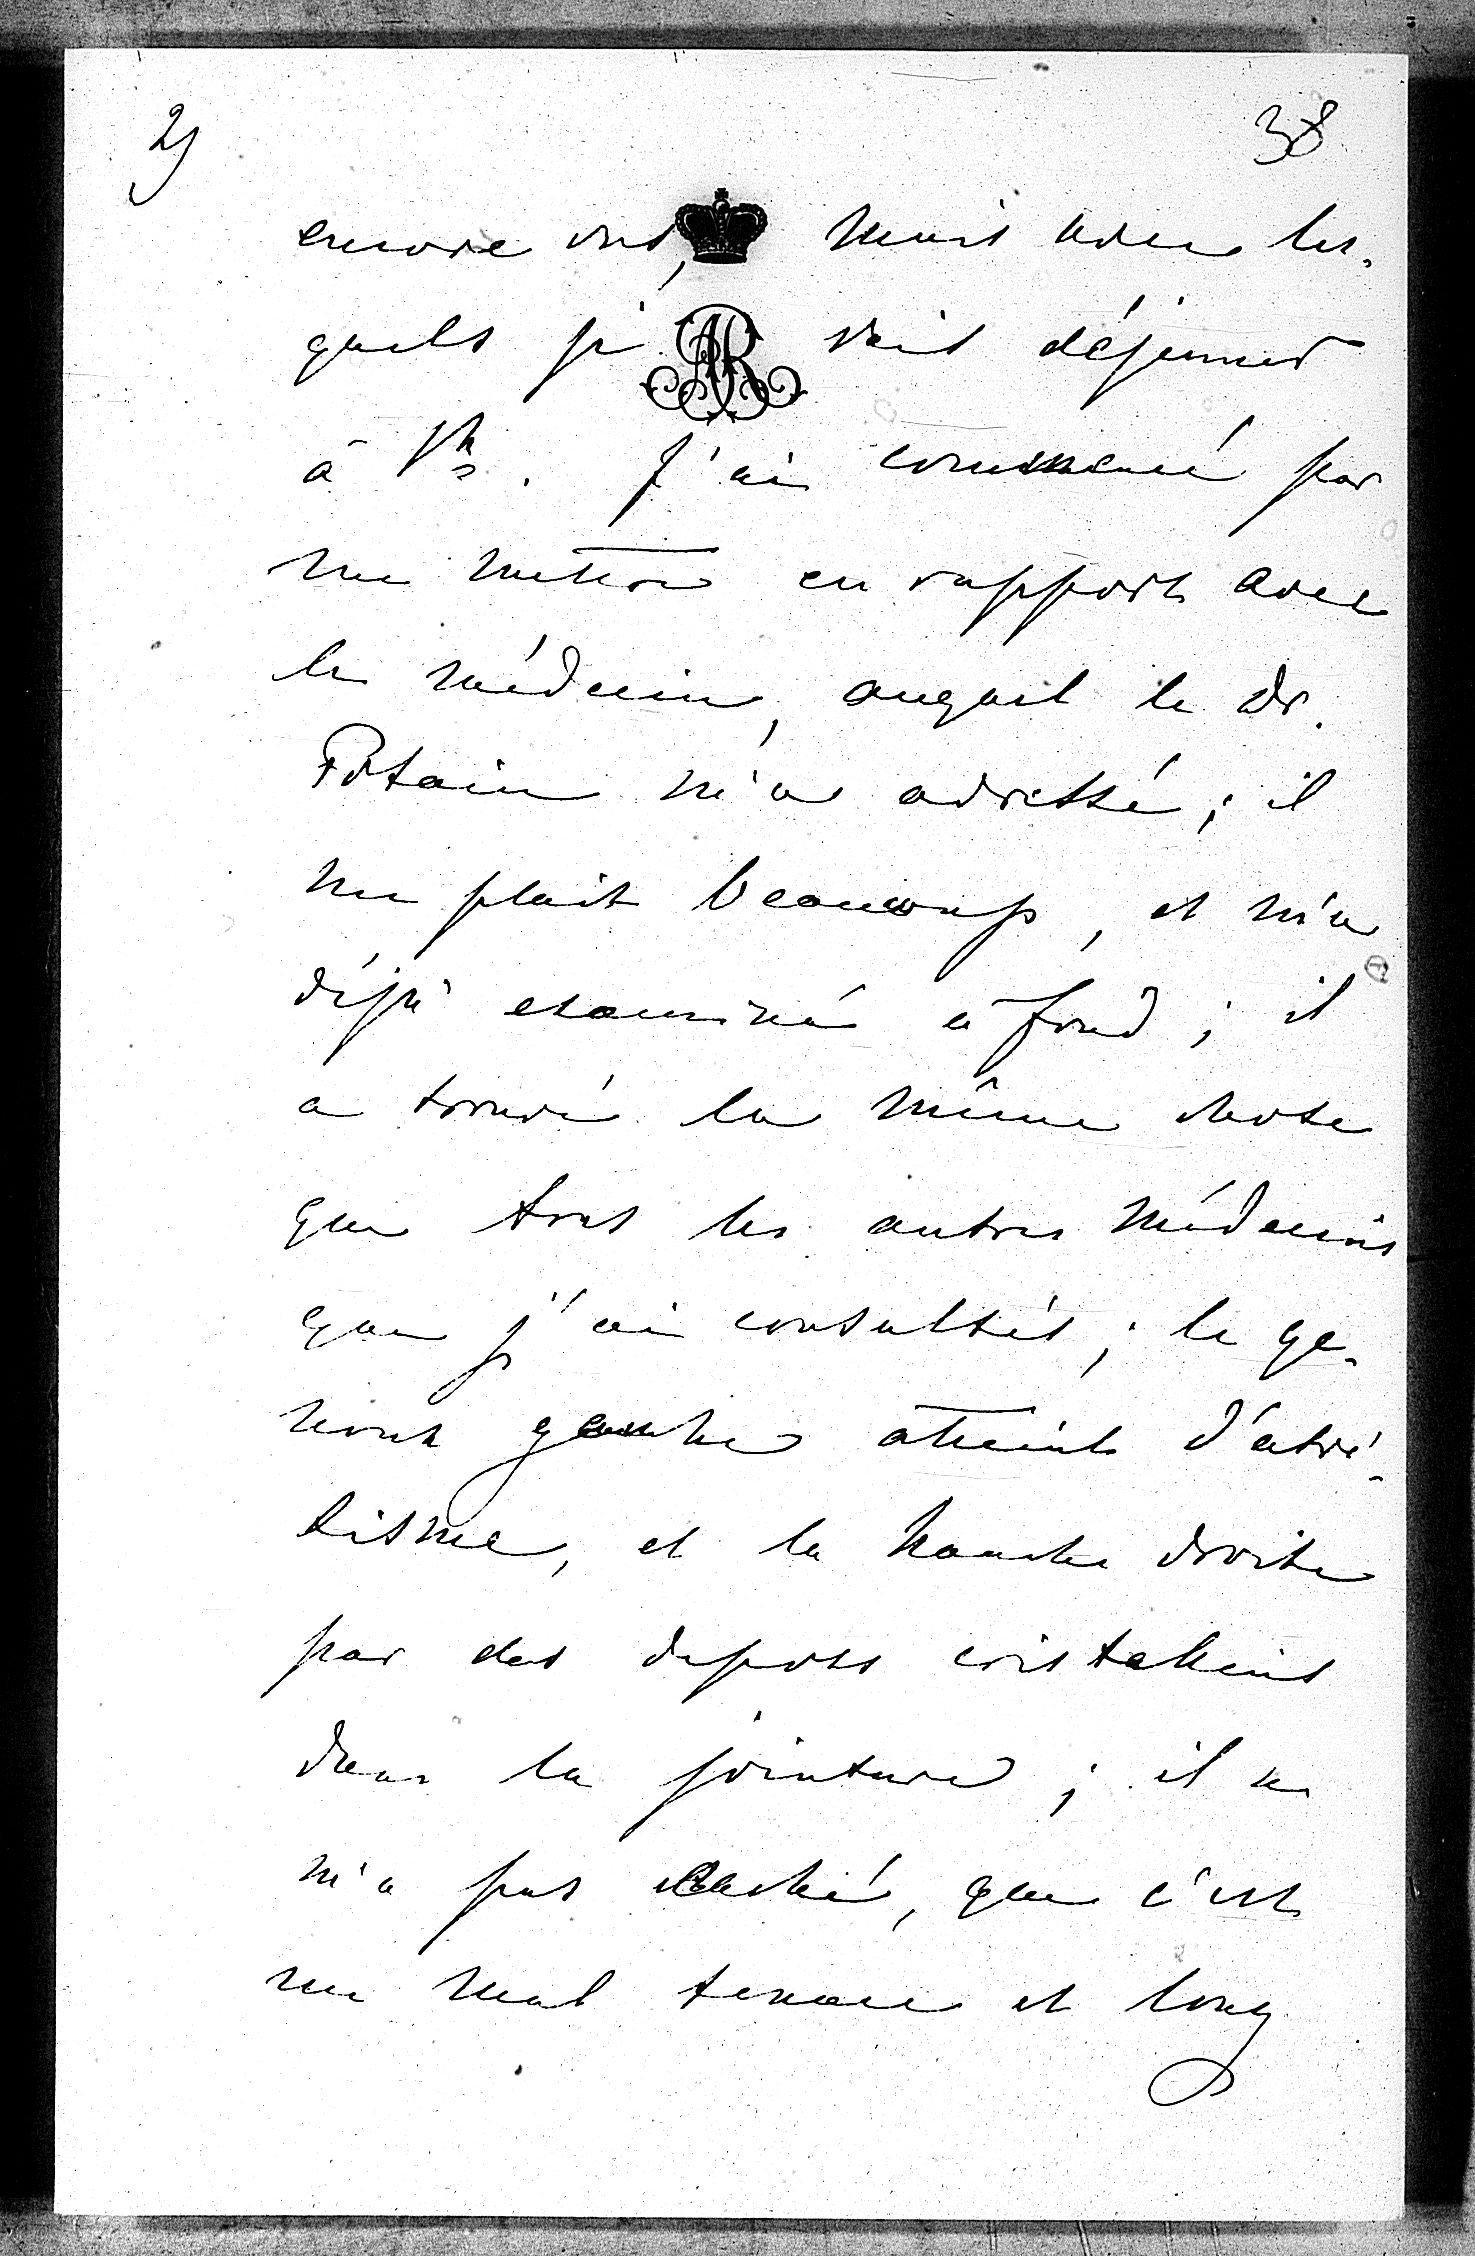 2) 38
encore vus, mais avec les-
quels je vais déjeuner
à 1h. J'ai commencé par
me mettre en rapport avec
le médecin, auquel le Dr.
Potain m'a adressé; il
me plait beaucoup, et m'a
déjà examiné à fond; il
a trouvé la même chose
que tous les autres médecins
que j'ai consultés; le ge-
noux gauche atteint d'atri-
tisme, et la hanche droite
par des depots cristalins
dans la jointure; il ne
m'a pas caché, que c'est
un mal tenace et long